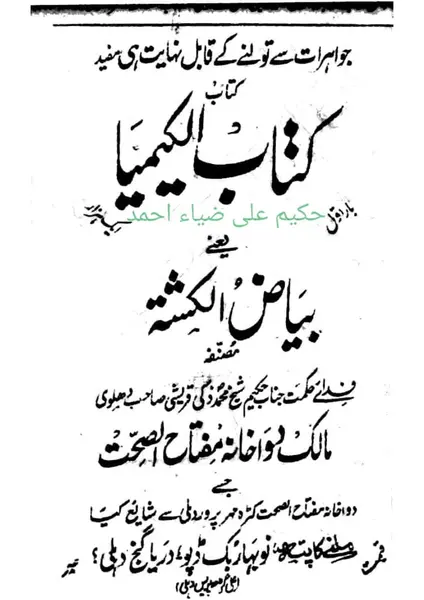 جواہرات سے تولنے کے قابل نہایت ہی مفید
کتاب
کتاب الکیمیا
بار اول
حکیم علی ضیاء احمد
یعنے
بیاض الکشتہ
مصنفہ
فدائے حکمت جناب حکیم شیخ محمد ذکی قریشی صاحب دھلوی
مالک دواخانہ مفتاح الصحت
جسے
دواخانہ مفتاح الصحت کٹرہ مہر پرور دہلی سے شایع کیا
ملنے کا پتہ نوبہار بک ڈپو، دریا گنج دہلی؟